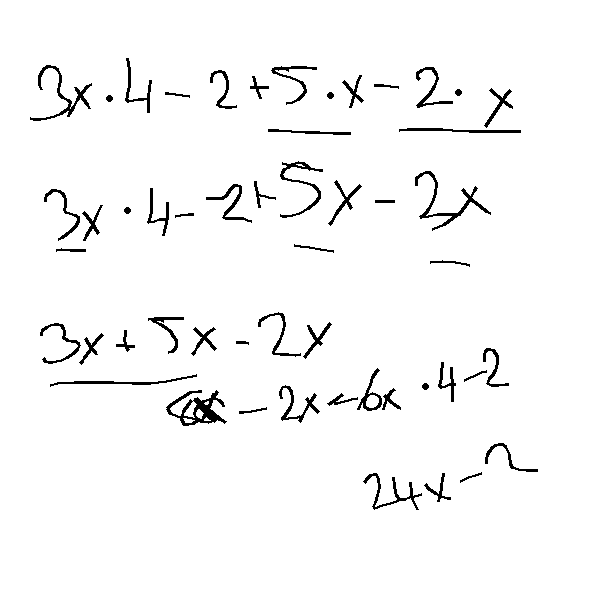 3x · 4 - 2 + 5 · x - 2 · x
3x · 4 - 2 + 5x - 2x
3x + 5x - 2x
- 2x = 6x · 4 - 2
24x - 2